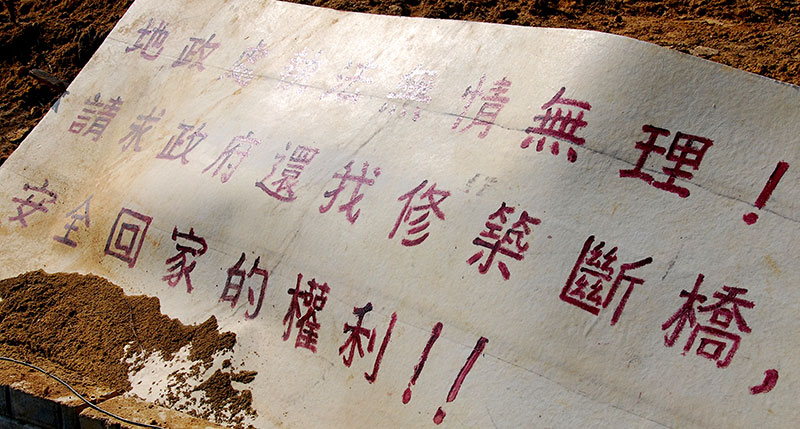 地政處執法無情無理！
請求政府還我修築斷橋，
安全回家的權利！！